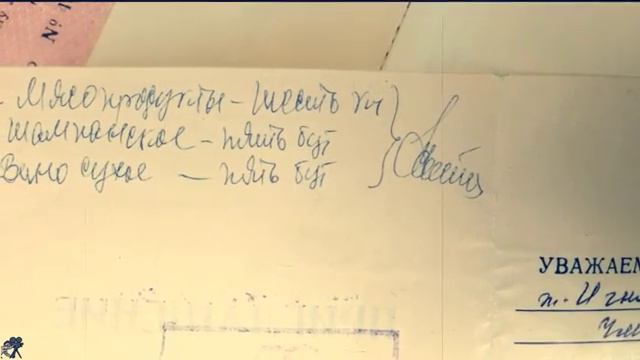 № 1
- Мясопродукты – шесть кг
Шампанское – пять бут
Вино сухое — пять бут
УВАЖАЕМ
т.